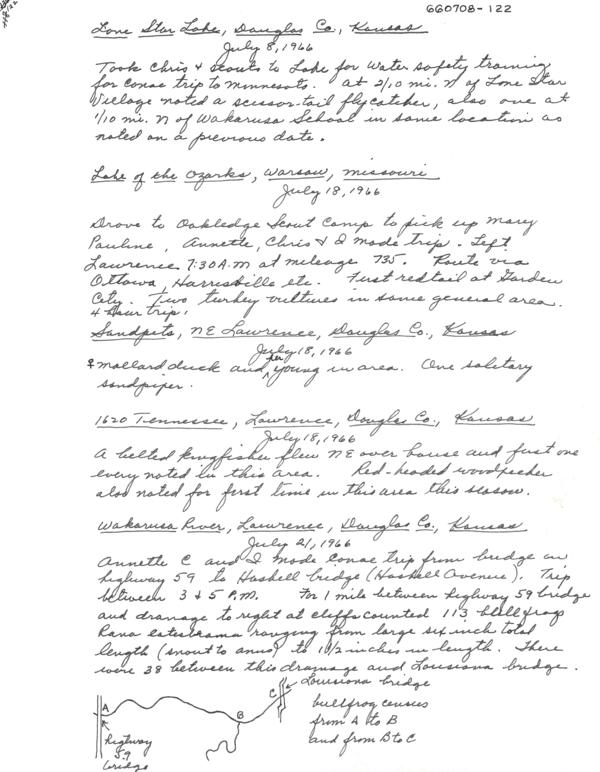 660708-122
Lone Star Lake, Douglas Co., Kansas
July 8, 1966
Took Chris & scouts to Lake for water safety training
for canoe trip to Minnesota. At 2/10 mi. N of Lone Star
Village noted a scissor-tail flycatcher, also one at
1/10 mi. N of Wakarusa School in same location as
noted on a previous date.
Lake of the Ozarks, Warsaw, Missouri
July 18, 1966
Drove to Oakledge Scout Camp to pick up Mary
Pauline, Annette, Chris & I made trip. Left
Lawrence 7:30 A.M at mileage 735. Route via
Ottawa, Harrisville etc. First redtail at Garden
City. Two turkey vultures in same general area.
4 hour trip.
Sandpits, NE Lawrence, Douglas Co., Kansas
July 18, 1966
♀ mallard duck and her young in area. One solitary
sandpiper.
1620 Tennessee, Lawrence, Douglas Co., Kansas
July 18, 1966
A belted kingfisher flew NE over house and first one
every noted in this area. Red-headed woodpecker
also noted for first time in this area this season.
Wakarusa River, Lawrence, Douglas Co., Kansas
July 21, 1966
Annette C and I made canoe trip from bridge on
highway 59 to Haskell bridge (Haskell Avenue). Trip
between 3 & 5 P.M. For 1 mile between highway 59 bridge
and drainage to right at cliffs counted 113 bullfrogs
Rana catesbiana ranging from large six inch total
length (snout to anus) to 1 1/2 inches in length. There
were 38 between this drainage and Louisiana bridge.
Louisiana bridge
C
A
B
bullfrog census
from A to B
and from B to C
Highway
59
bridge